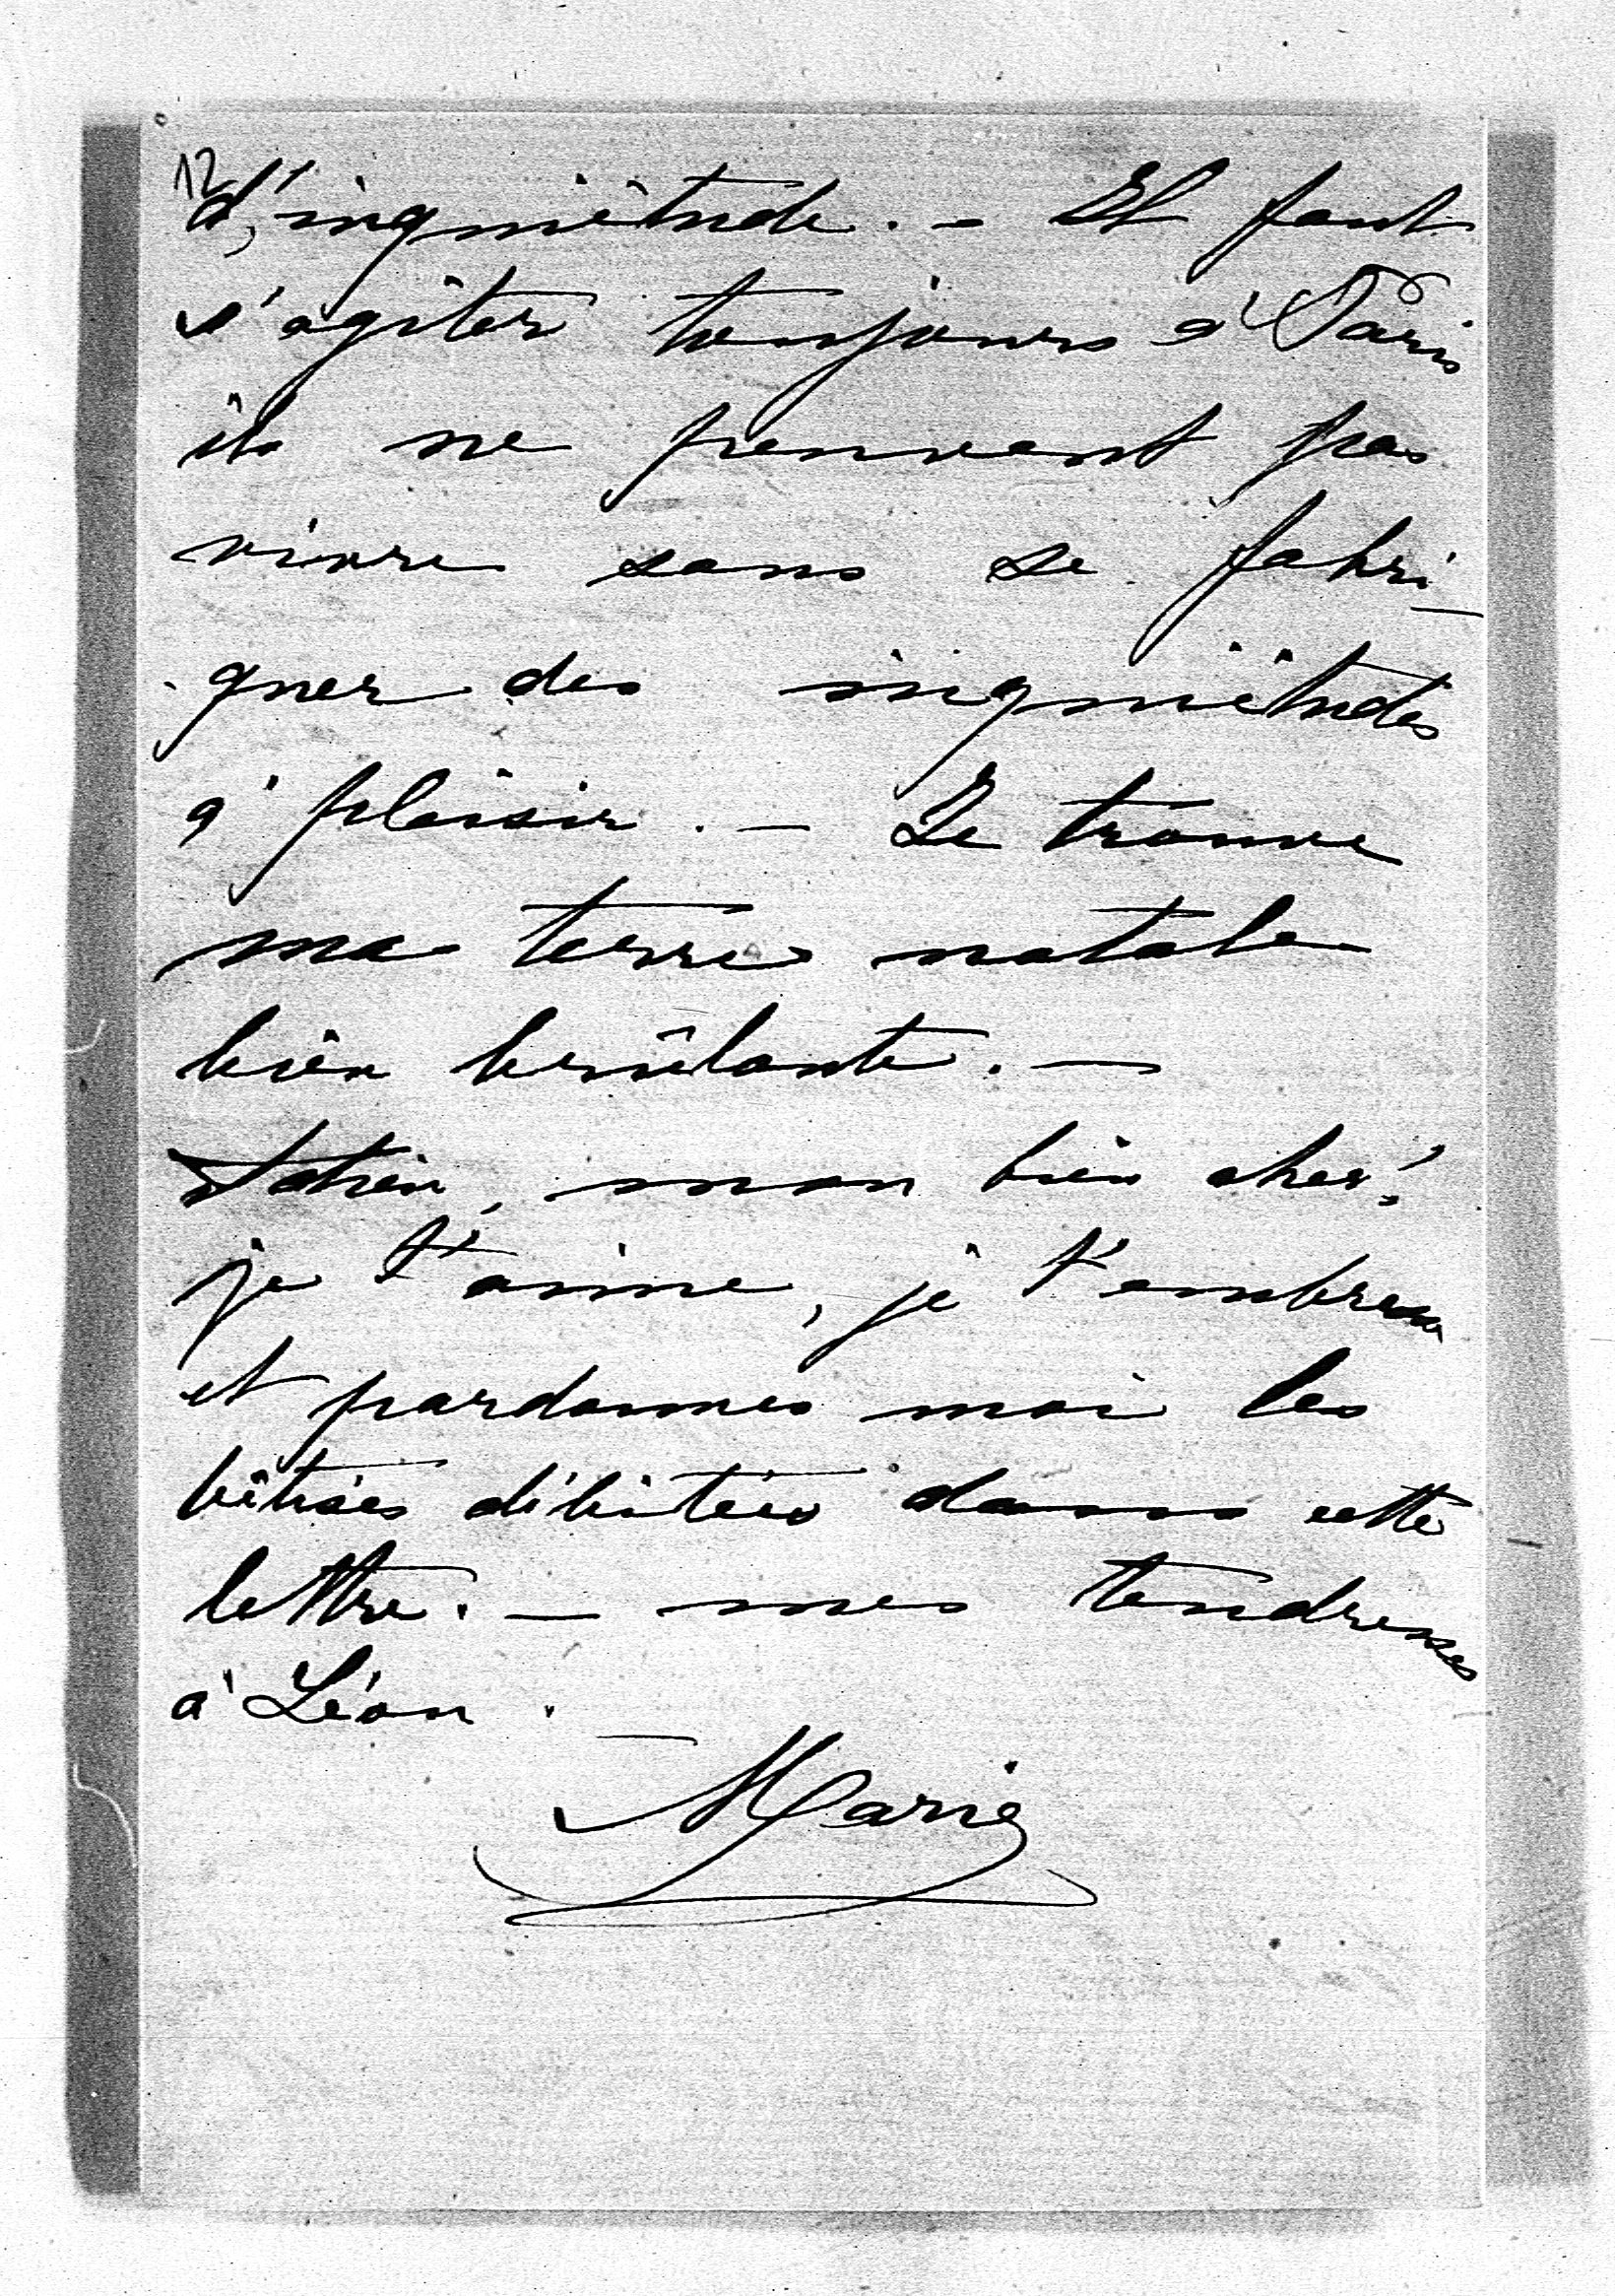 12
d'inquiètude. - Il faut
s'agiter toujours à Paris
ils ne peuvent pas
vivre sans se fabri-
quer des inquiètudes
à plaisir. - Je trouve
ma terre natale
bien brûlante. -
mon bien cher!
je t'aime, je t'embrasse
et pardonnes moi les
bêtises débitées dans cette
lettre. - mes tendresses
à Léon. -
Marie